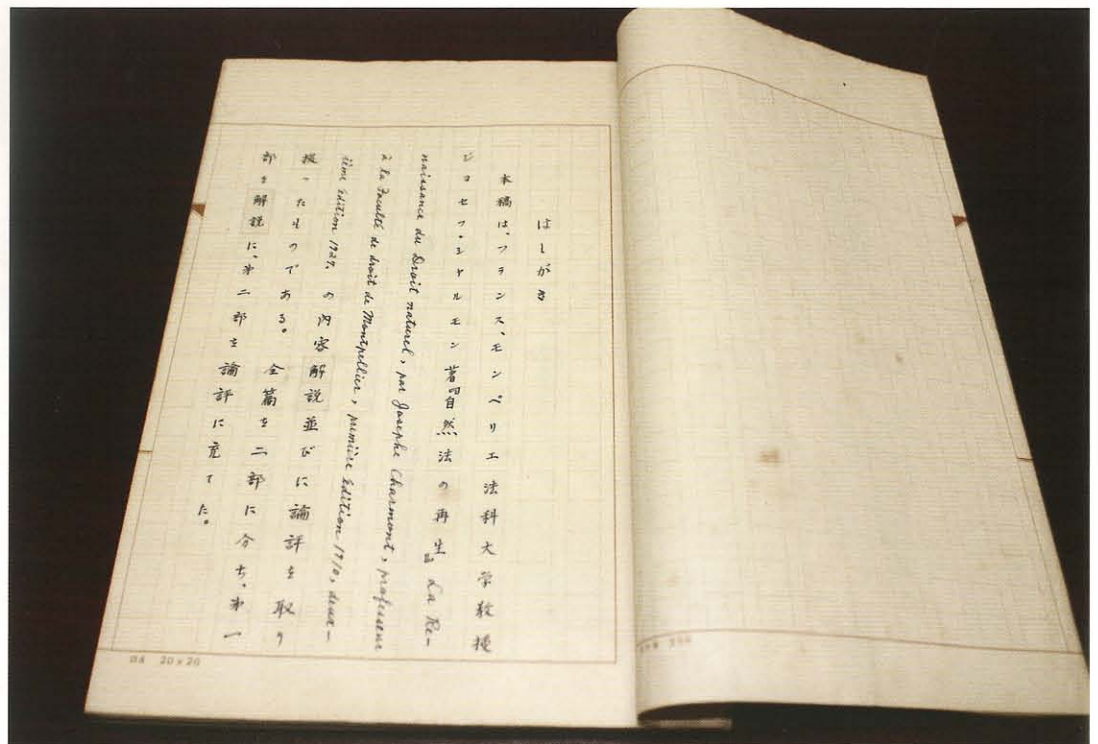 はしがき
本稿は、フランス、モンペリエ法科大学教授
ジヨセフ・シャルモン著『自然法の再生』La Re-
naissance du Droit naturel, par Josephe Charmont, professeur
à la Faculté de droit de Montpellier, première édition 1910, deux-
ième édition 1927. の内容解説並びに論評を取り
扱ったものである。 全篇を二部に分ち、第一
部を解説に、第二部を論評に充てた。
20×20